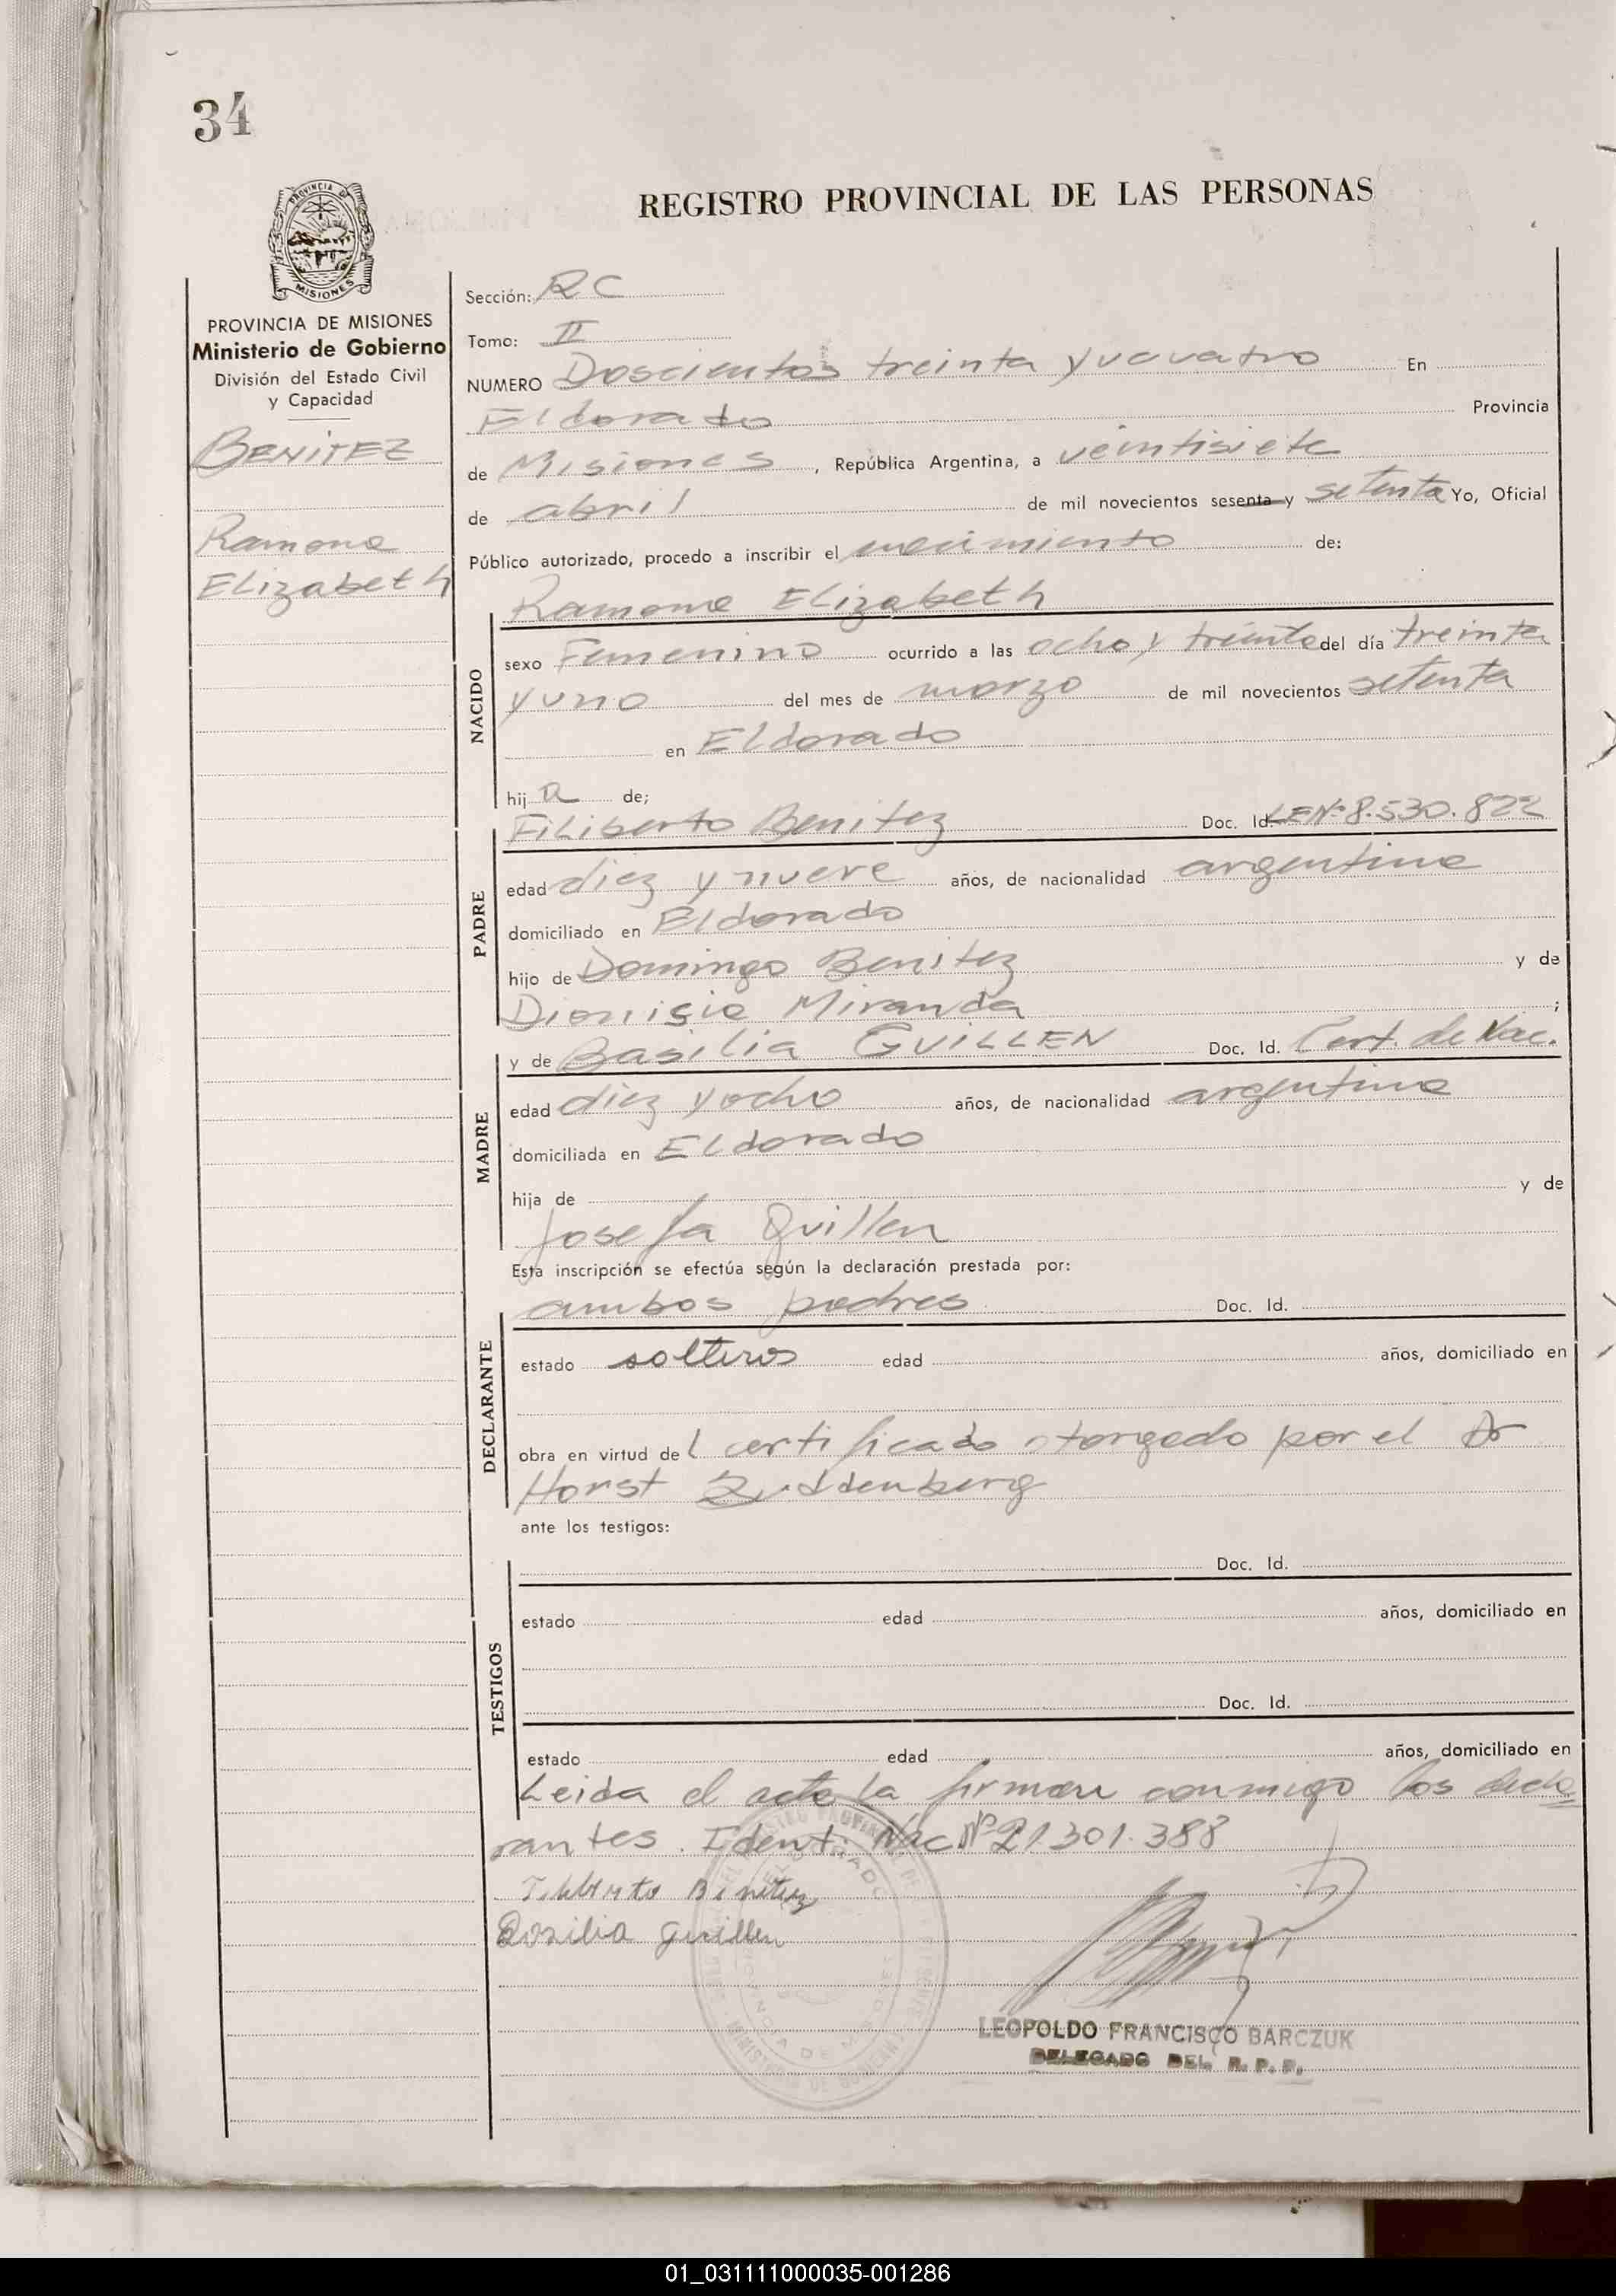 34
REGISTRO PROVINCIAL DE LAS PERSONAS
PROVINCIA DE MISIONES
Ministerio de Gobierno
División del Estado Civil
y Capacidad
BENITEZ
Ramona
Elizabeth
Sección: RC
Tomo: II
NUMERO Doscientos treinta y cuatro En
Eldorado Provincia
de Misiones, República Argentina, a veintisiete
de abril de mil novecientos sesenta y setenta Yo, Oficial
Público autorizado, procedo a inscribir el nacimiento de:
Ramona Elizabeth
NACIDO
sexo Femenino ocurrido a las ocho y treinta del día treinta
y uno del mes de marzo de mil novecientos setenta
en Eldorado
hij a de;
Filiberto Benitez Doc. Id. LE Nº 8.530.822
PADRE
edad diez y nueve años, de nacionalidad argentina
domiciliado en Eldorado
hijo de Domingo Benitez y de
Dionisia Miranda ;
y de Basilia GUILLEN Doc. Id. Cert. de Nac.
MADRE
edad diez y ocho años, de nacionalidad argentina
domiciliada en Eldorado
hija de y de
Josefa Guillen
Esta inscripción se efectúa según la declaración prestada por:
ambos padres Doc. Id.
DECLARANTE
estado solteros edad años, domiciliado en
obra en virtud de l certificado otorgado por el Dr
Horst
ante los testigos:
Doc. Id.
TESTIGOS
estado edad años, domiciliado en
Doc. Id.
estado edad años, domiciliado en
Leida el acta la firman conmigo los decla
rantes. Ident. Nac Nº 21.301.388
Filiberto Benitez
Basilia Guillen
LEOPOLDO FRANCISCO BARCZUK
DELEGADO DEL R. P. P.
01_031111000035-001286